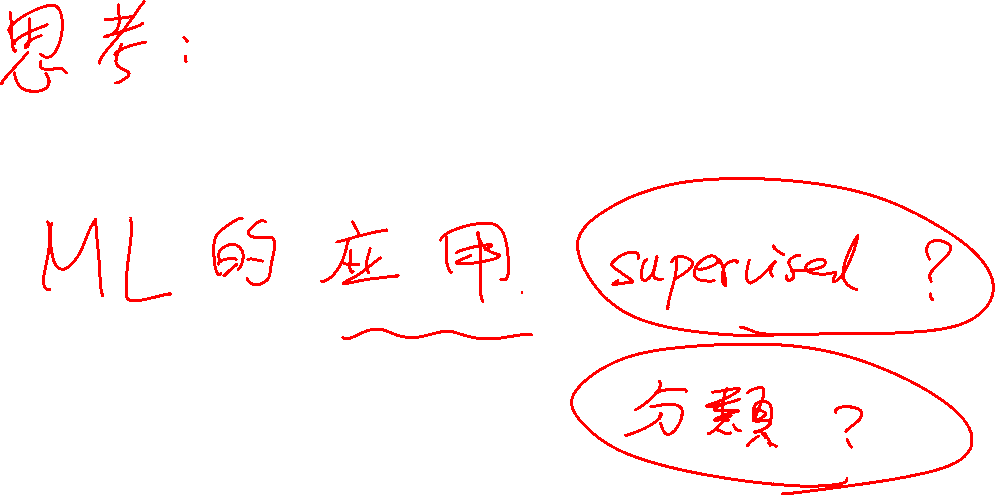 思考:
ML 的应用 supervised ?
分類 ?